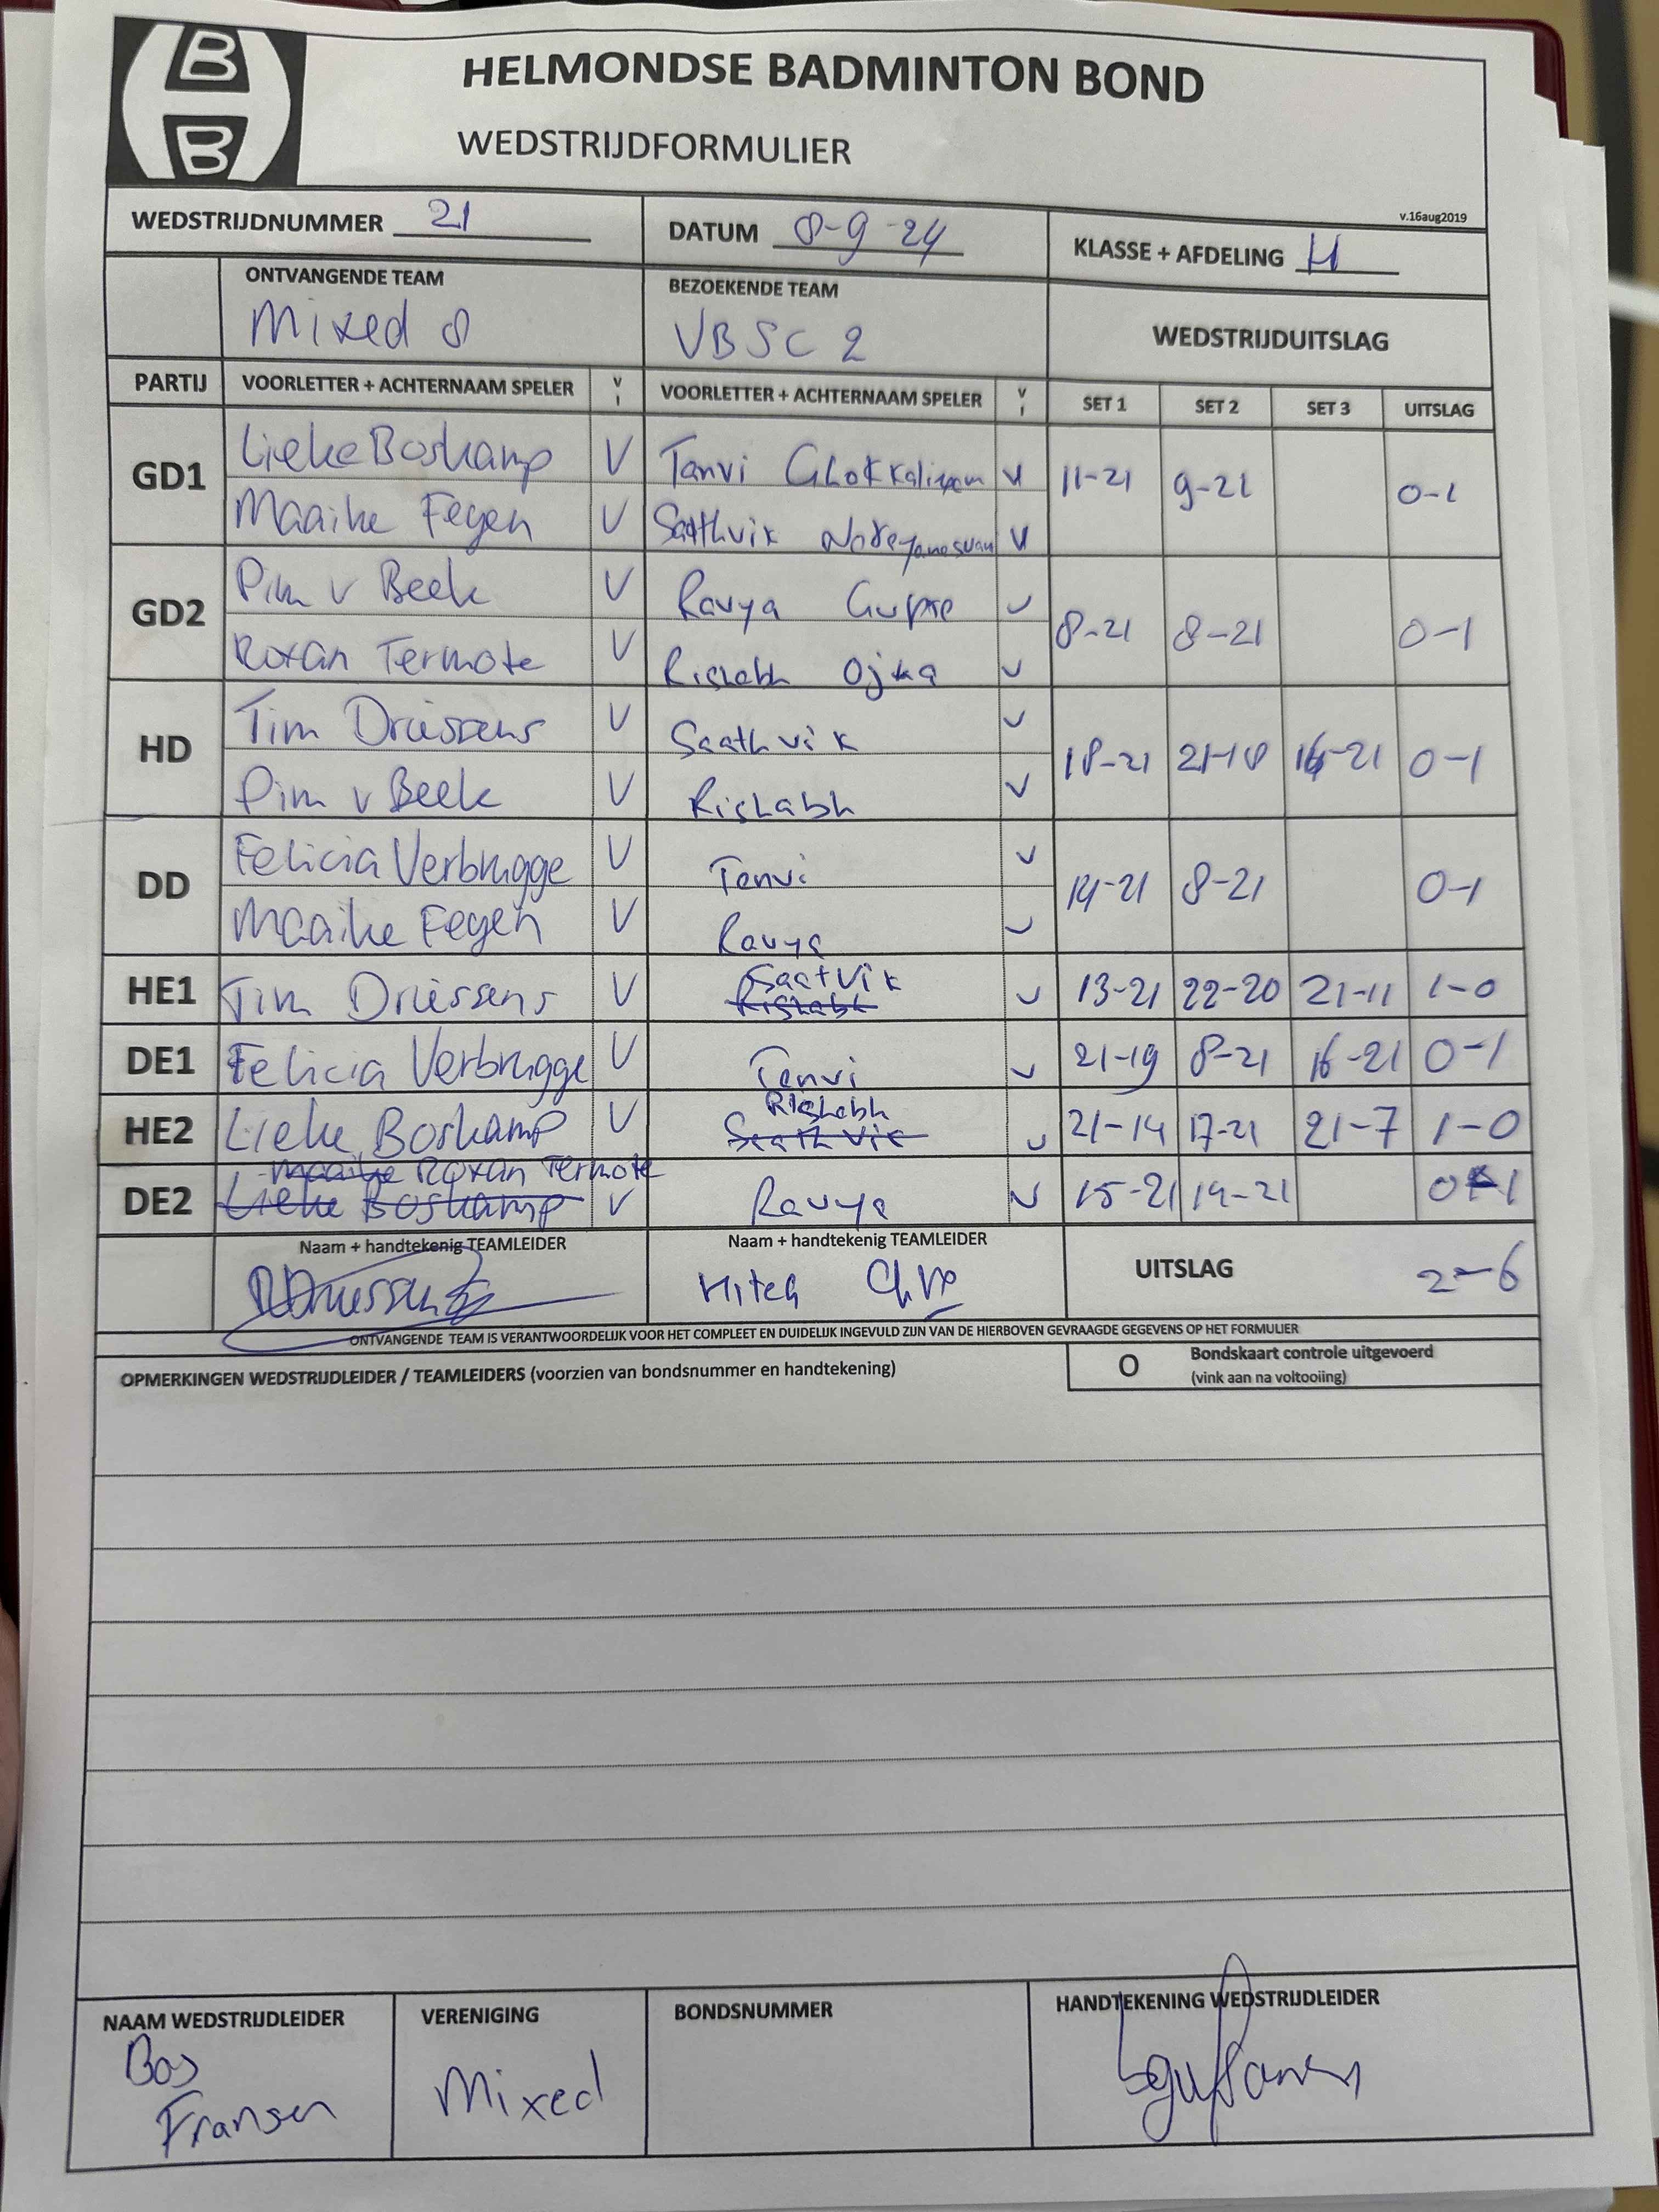 B
B
HELMONDSE BADMINTON BOND
WEDSTRIJDFORMULIER
v.16aug2019
WEDSTRIJDNUMMER 21 DATUM 8-9-24 KLASSE + AFDELING H
ONTVANGENDE TEAM BEZOEKENDE TEAM
Mixed 8 VBSC 2 WEDSTRIJDUITSLAG
PARTIJ VOORLETTER + ACHTERNAAM SPELER V I VOORLETTER + ACHTERNAAM SPELER V I SET 1 SET 2 SET 3 UITSLAG
GD1 Lieke Boskamp V Tanvi V 11-21 9-21 0-1
Maaike Fegen V Saathvik V
GD2 Pim v Beek V Ravya V 8-21 8-21 0-1
Roxan Termote V Rishabh Ojha V
HD Tim Driessens V Saathvik V 18-21 21-18 21 0-1
Pim v Beek V Rishabh V
DD Felicia Verbrugge V Tanvi V 14-21 8-21 0-1
Maaike Fegen V Ravya V
HE1 Tim Driessens V Saatvik Rishabh V 13-21 22-20 21-11 1-0
DE1 Felicia Verbrugge V Tanvi V 21-19 8-21 16-21 0-1
HE2 Lieke Boskamp V Rishabh Saathvik V 21-14 17-21 21-7 1-0
Maaike Roxan Termote
DE2 Lieke Boskamp V Ravya V 15-21 14-21 0-1
Naam + handtekenig TEAMLEIDER Naam + handtekenig TEAMLEIDER
Driessens Hitesh UITSLAG 2-6
ONTVANGENDE TEAM IS VERANTWOORDELIJK VOOR HET COMPLEET EN DUIDELIJK INGEVULD ZIJN VAN DE HIERBOVEN GEVRAAGDE GEGEVENS OP HET FORMULIER
OPMERKINGEN WEDSTRIJDLEIDER / TEAMLEIDERS (voorzien van bondsnummer en handtekening) O Bondskaart controle uitgevoerd
(vink aan na voltooiing)
NAAM WEDSTRIJDLEIDER VERENIGING BONDSNUMMER HANDTEKENING WEDSTRIJDLEIDER
Bas
Fransen Mixed